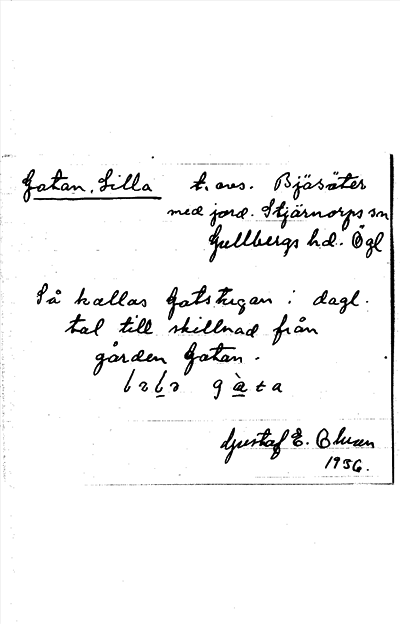 Gatan, Lilla t. avs. Bjäsäter
med jord. Stjärnorps sn
Gullbergs hd. Ögl
Så kallas Gatstugan i dagl.
tal till skillnad från
gården Gatan.
Gustaf E. Olsson
1936.